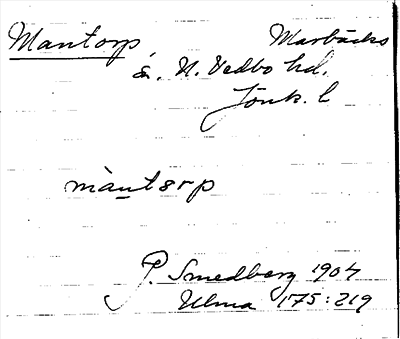 Mantorp, Marbäcks
s. N. Vedbo hd.
Jönk. l
màntorp
P. Smedberg 1904
Ulma 175:219